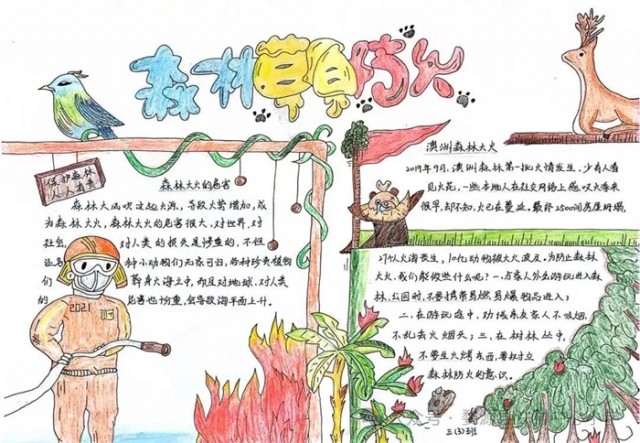 森林草原防火
保护森林
人人有责
森林大火的危害
森林大风吹这起火源,导致火势增加,成
为森林大火,森林大火的危害很大,对世界,对
社会,对人类的损失是惨重的,不但
让鸟 钟小动物们无家可归,各种珍奇植物
们 葬身火海之中,却且对地球,对人类
的 危害也惨重,会导致海平面上升。
2021
澳洲森林大火
2019年9月,澳洲森林第一批火情发生,少有人看
见火花,一些本地人在社交网络上感叹火季来
很早,却不知,火已在蔓延。最终2500间房屋坍塌,
火海发生,10亿动物被大火波及。为防止森林
大火,我们要做些什么呢?一、与家人外出游玩进入森
林、公园时,不要携带易燃易爆物品进入;
二、在游玩途中,劝诫亲友家人不吸烟,
不乱丢火烟头;三、在树林丛中,
不要生火烤东西,要树立
森林防火的意识。
三(3)班